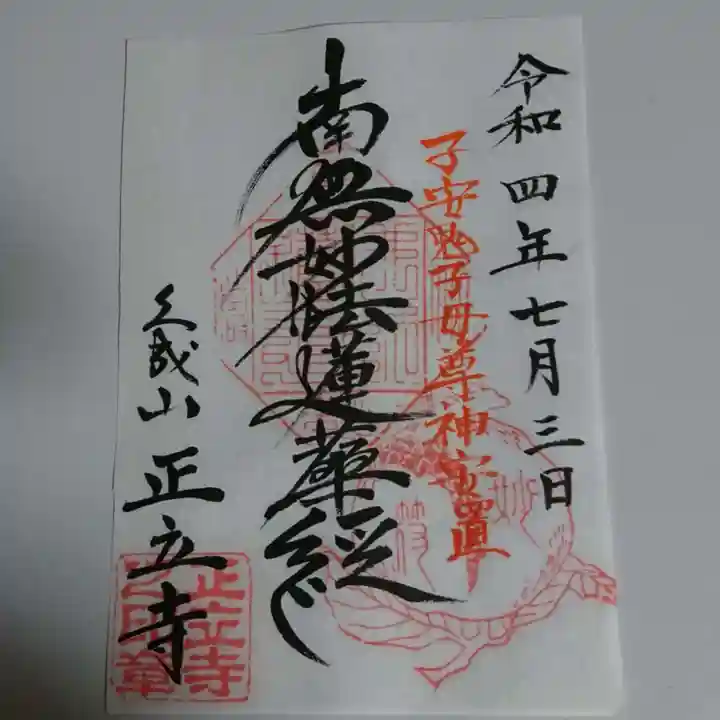 令和四年七月三日
子安鬼子母尊神安置
南無妙法蓮華経
久成山 正立寺
妙
正立寺